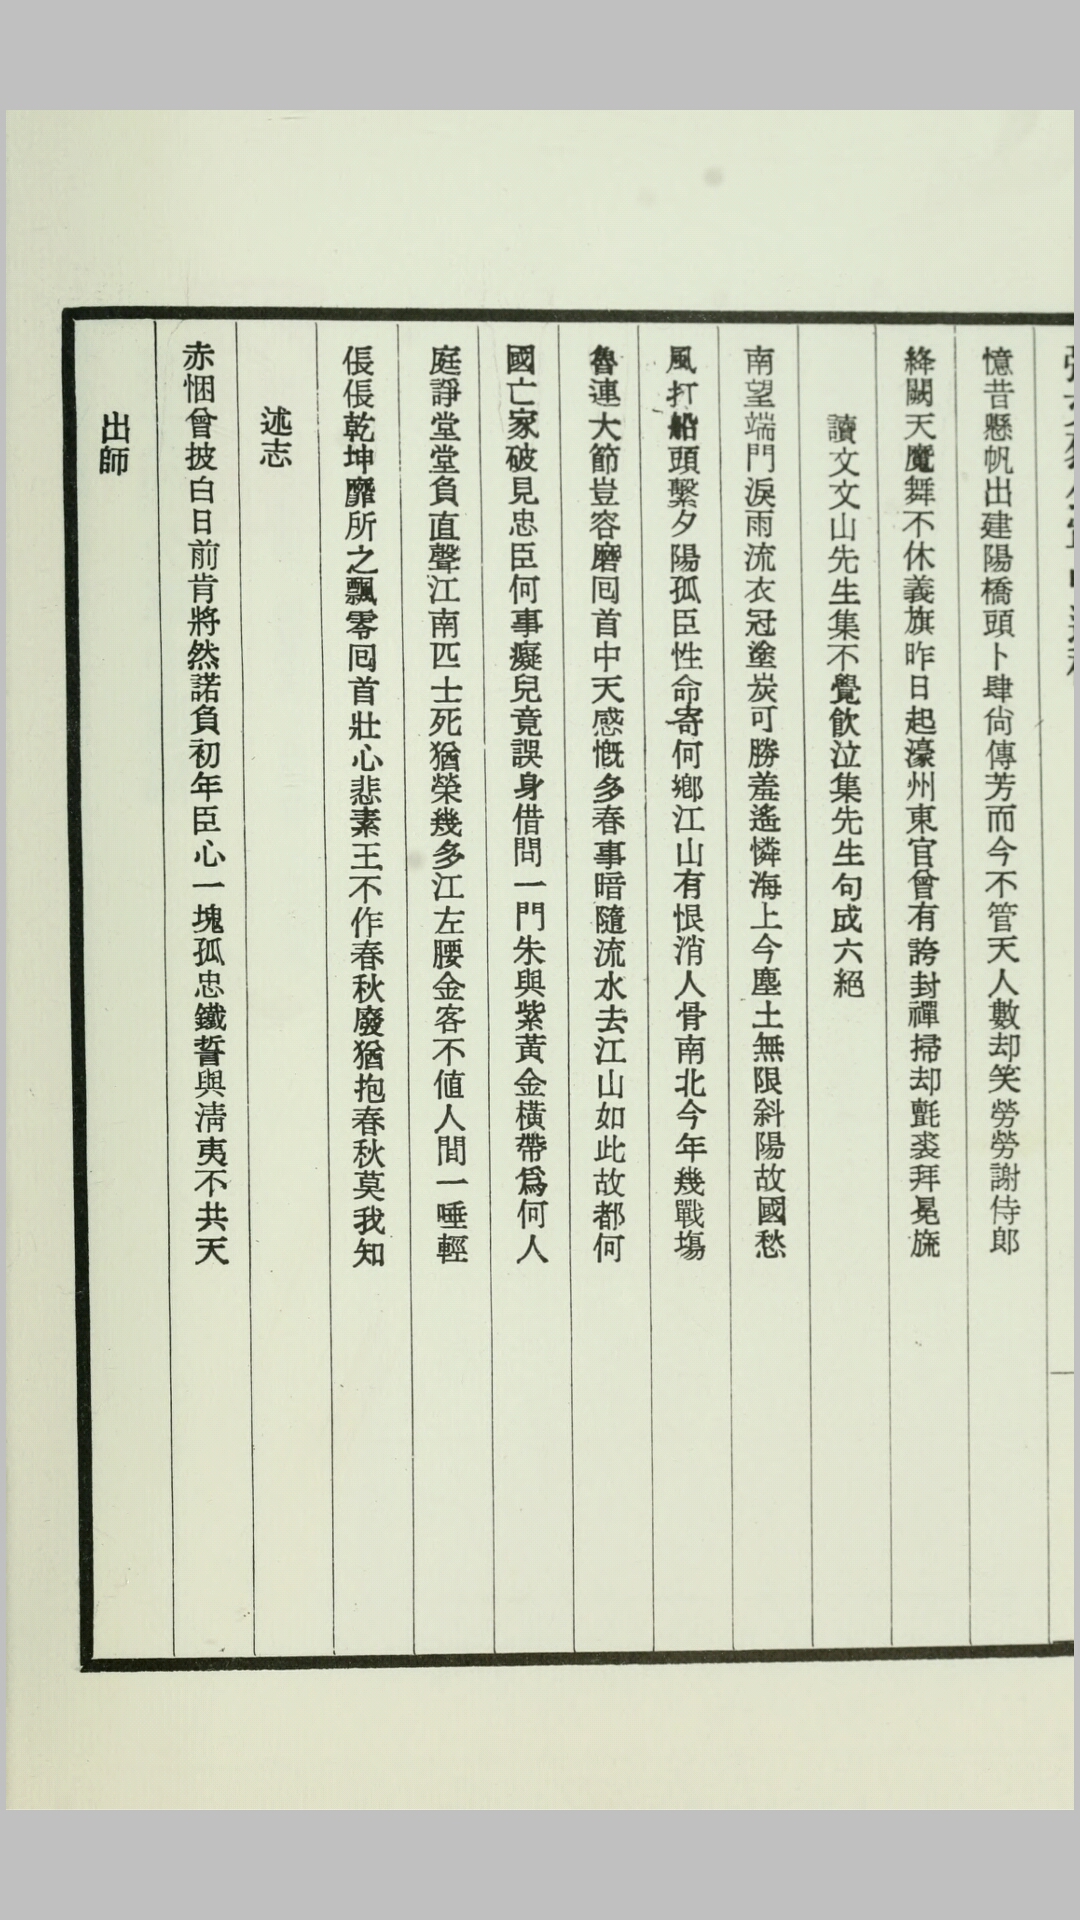 憶昔懸帆出建陽橋頭卜肆尙傳芳而今不管天人數却笑勞勞謝侍郎
絳闕天魔舞不休義旗昨日起濠州東官曾有誇封禪掃却氈裘拜冕旒
讀文文山先生集不覺飮泣集先生句成六絕
南望端門淚雨流衣冠塗炭可勝羞遙憐海上今塵土無限斜陽故國愁
風打船頭繫夕陽孤臣性命寄何鄕江山有恨消人骨南北今年幾戰塲
魯連大節豈容磨囘首中天感慨多春事暗隨流水去江山如此故都何
國亡家破見忠臣何事癡兒竟誤身借問一門朱與紫黃金橫帶爲何人
庭諍堂堂負直聲江南匹士死猶榮幾多江左腰金客不値人間一唾輕
倀倀乾坤靡所之飄零囘首壯心悲素王不作春秋廢猶抱春秋莫我知
述志
赤悃曾披白日前肯將然諾負初年臣心一塊孤忠鐵誓與淸夷不共天
出師